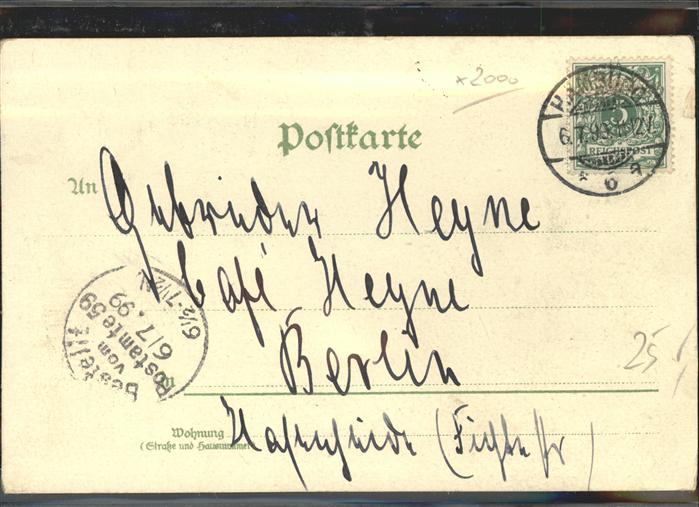 x2000
Postkarte
HAMBURG
6.7.99
* 6 a.
5
REICHSPOST
An Gebrüder Heyne
Café Heyne
Berlin
Wohnung
(Straße und Hausnummer)
Hasenheide (Fichtestr)
Bestellt
vom
Postamte 59
6/7.99
6½-7½N
25